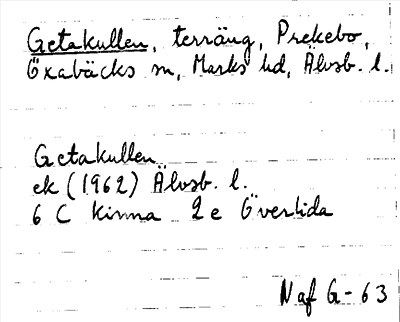 Getakullen, terräng, Prekebo,
Öxabäcks sn, Marks hd, Älvsb. l.
Getakullen
ek (1962) Älvsb. l.
6 C Kinna 2 e Överlida
Naf G-63